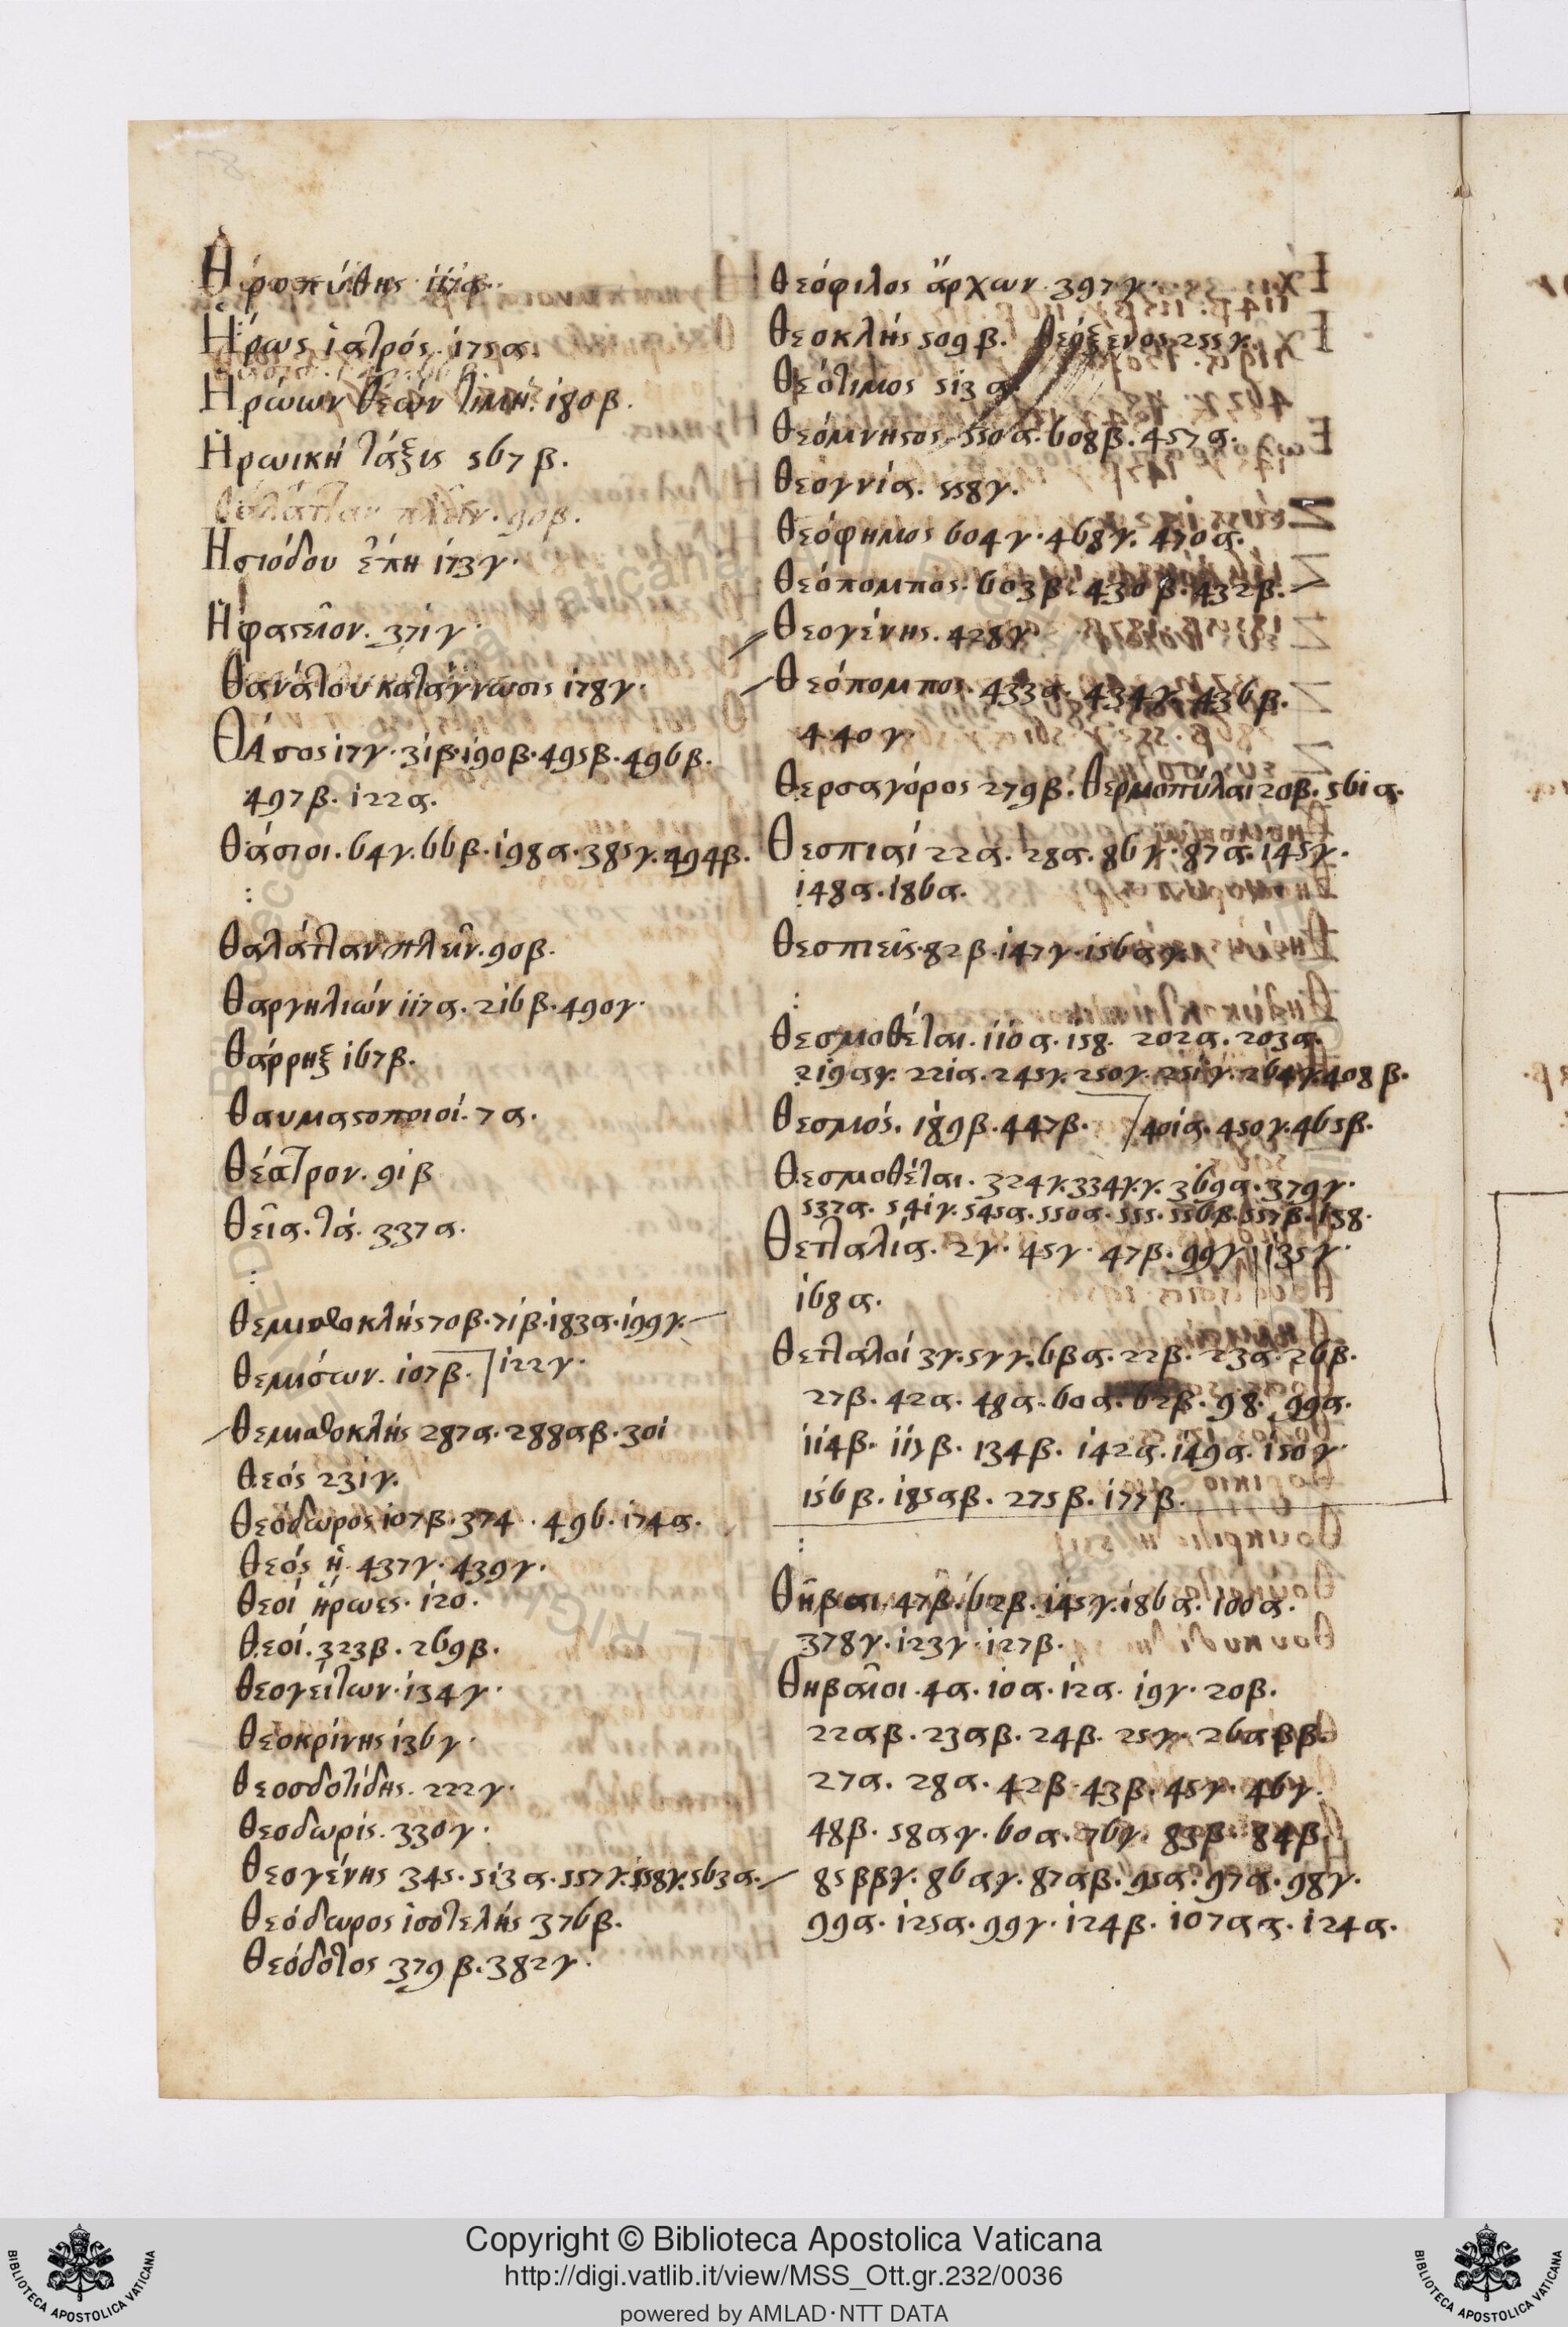 Ἡροπύθης 117β.
Ἥρως ἰατρός. 175α.
Ἡρώων θεῶν τιμή. 180β.
Ἡρωικὴ τάξις 567β.
θαλάτταν πλεῖν. 90β.
Ἡσιόδου ἔπη 173γ.
Ἡφαστεῖον. 371γ.
Θανάτου κατάγνωσις 178γ.
Θάσος 17γ. 31β. 190β. 495β. 496β.
497β. 122α.
Θάσιοι. 64γ. 66β. 198α. 385γ. 494β.
:
Θαλάτταν πλεῖν. 90β.
Θαργηλιών 117α. 216β. 490γ.
Θάρρηξ 167β.
Θαυμαστοποιοί. 7α.
Θέατρον. 91β
Θεῖα. τά. 337α.
:
Θεμιστοκλής 70β. 71β. 183α. 199γ.
Θεμίστων. 107β. 122γ.
Θεμιστοκλής 287α. 288αβ. 301
Θεός 231γ.
Θεόδωρος 107β. 374. 496. 174α.
Θεός ἡ. 437γ. 439γ.
Θεοί ἥρωες. 120.
Θεοί. 323β. 269β.
Θεογείτων. 134γ.
Θεοκρίνης 136γ.
Θεοσδοτίδης. 222γ.
Θεοδωρίς. 330γ.
Θεογένης 345. 513α. 557γ. 558γ. 563α.
Θεόδωρος ἰσοτελής 376β.
Θεόδοτος 379β. 382γ.
Θεόφιλος ἄρχων. 397γ.
Θεοκλῆς 509β. Θεόξενος 255γ.
Θεότιμος 513α
Θεόμνηστος. 550α. 608β. 457α.
Θεογνία. 558γ.
Θεόφημος 604γ. 468γ. 470α.
Θεόπομπος. 603β. 430β. 432β.
Θεογένης. 428γ
Θεόπομπος. 433α. 434γ. 436β.
440γ
Θερσαγόρος 279β. Θερμοπύλαι 20β. 561α.
Θεσπιαί 22α. 28α. 86γ. 87α. 145γ.
148α. 186α.
Θεσπιεῖς. 82β. 147γ. 156αγ.
:
Θεσμοθέται. 110α. 158. 202α. 203α.
219αγ. 221α. 245γ. 250γ. 251γ. 264γ. 408β.
Θεσμός. 189β. 447β. 401α. 450γ. 465β.
Θεσμοθέται. 324γ. 334γ.γ. 369α. 379γ.
537α. 541γ. 545α. 550α. 555. 556β. 557β. 158.
Θετταλία. 2γ. 45γ. 47β. 99γ. 135γ.
168α.
Θετταλοί 3γ. 5γγ. 6βα. 22β. 23α. 26β.
27β. 42α. 48α. 60α. 62β. 98. 99α.
114β. 115β. 134β. 142α. 149α. 150γ
156β. 185αβ. 275β. 177β.
:
Θῆβαι. 47β. 62β. 145γ. 186α. 100α.
378γ. 123γ. 127β.
Θηβαῖοι. 4α. 10α. 12α. 19γ. 20β.
22αβ. 23αβ. 24β. 25γ. 26αββ.
27α. 28α. 42β. 43β. 45γ. 46γ.
48β. 58αγ. 60α. 76γ. 83β. 84β.
85ββγ. 86αγ. 87αβ. 95α. 97α. 98γ.
99α. 125α. 99γ. 124β. 107αα. 124α.
Copyright © Biblioteca Apostolica Vaticana
http://digi.vatlib.it/view/MSS_Ott.gr.232/0036
powered by AMLAD·NTT DATA
BIBLIOTECA APOSTOLICA VATICANA
BIBLIOTECA APOSTOLICA VATICANA